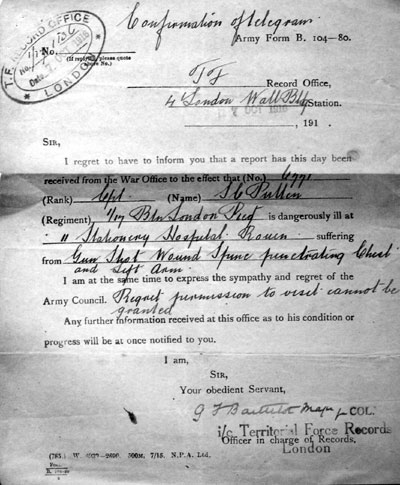 Confirmation of telegram.
T.F. RECORD OFFICE
LONDON
Army Form B. 104—80.
No.
(If replying, please quote
above No.)
T of F Record Office,
4 London Wall Bdgs Station.
OCT 1916
191 .
SIR,
I regret to have to inform you that a report has this day been
received from the War Office to the effect that (No.)
(Rank) Cpl. (Name) Pullen
(Regiment) 1/17 Btn London Regt is dangerously ill at
11 Stationery Hospital, Rouen suffering
from Gun Shot Wound Spine penetrating Chest
and Left Arm.
I am at the same time to express the sympathy and regret of the
Army Council. Regret permission to visit cannot be
granted
Any further information received at this office as to his condition or
progress will be at once notified to you.
I am,
SIR,
Your obedient Servant,
Major for COL.
i/c Territorial Force Records
Officer in charge of Records.
London
500M. 7/15. N.P.A. Ltd.